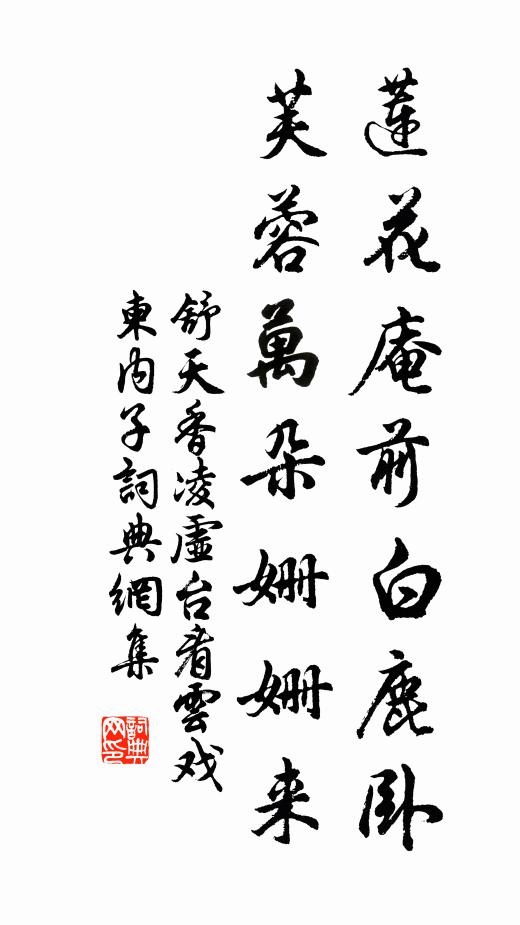 蓮花庵前白鹿臥
芙蓉萬朵姍姍来
舒天香凌虛台看雲戏
東內子詞典網集
詞典网印